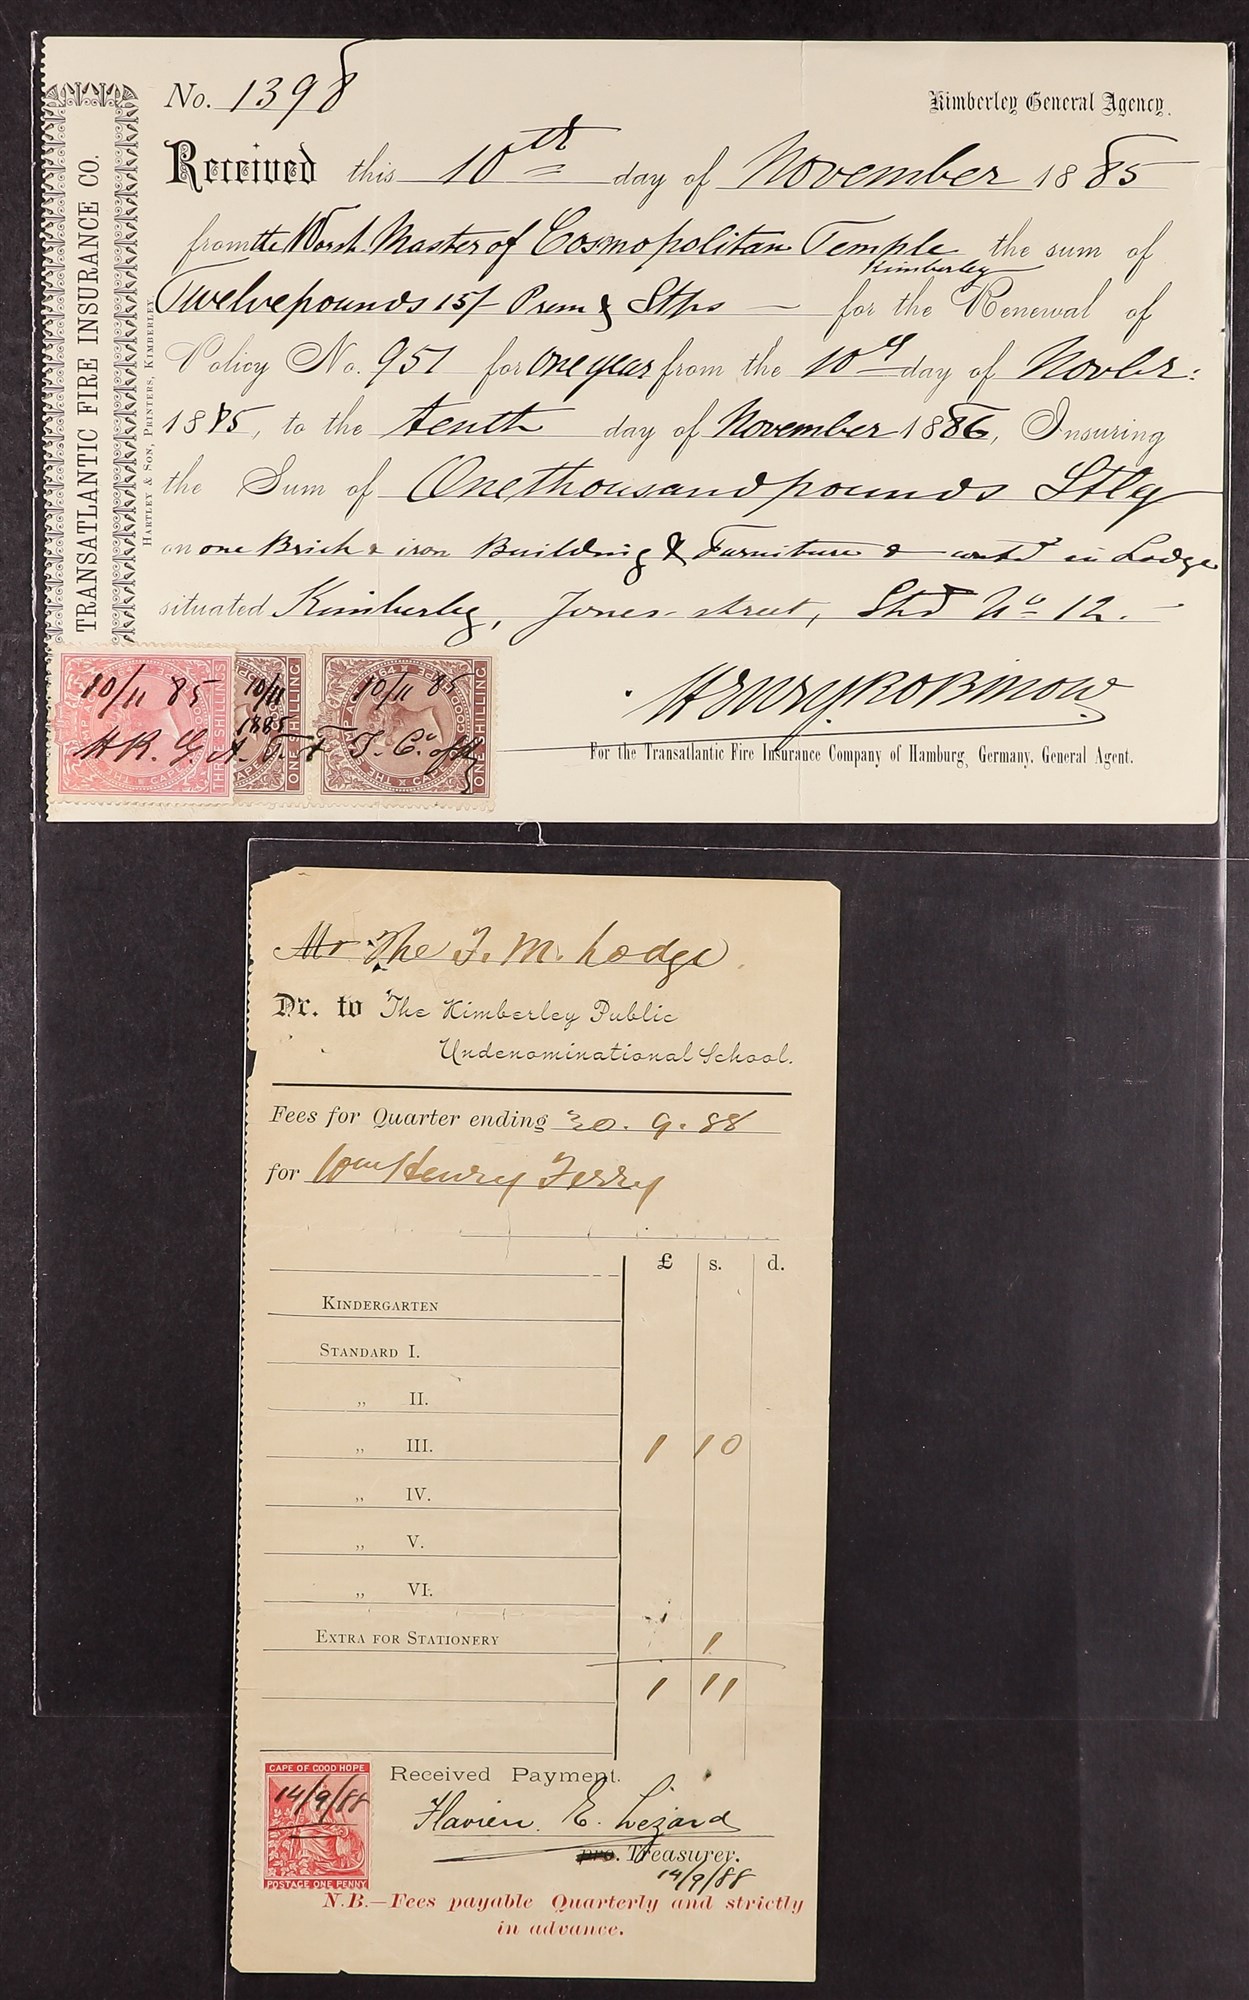 TRANSATLANTIC FIRE INSURANCE CO.
HARTLEY & SON, PRINTERS, KIMBERLEY.
No. 1398
Kimberley General Agency.
Received this 10th day of November 1885
from the Worsh. Master of Cosmopolitan Temple the sum of
Kimberley
Twelve pounds 15/- Prem & Stps — for the Renewal of
Policy No. 951 for one year from the 10th day of Novbr:
1885, to the tenth day of November 1886, Insuring
the Sum of One thousand pounds Stlg
on one Brick & iron Building & Furniture & contd in Lodge
situated Kimberley, Jones street, Std No 12.
Henry Robinow
For the Transatlantic Fire Insurance Company of Hamburg, Germany, General Agent.
10/11 85
10/11
1885
10/11 85
H. R. G. A. T.
THREE SHILLINGS
ONE SHILLING
ONE SHILLING
Mr The F. M. Lodge
Dr. to The Kimberley Public
Undenominational School.
Fees for Quarter ending 30.9.88
for Wm Henry Ferry
£ s. d.
KINDERGARTEN
STANDARD I.
„ II.
„ III. 1 10
„ IV.
„ V.
„ VI.
EXTRA FOR STATIONERY 1
1 11
CAPE OF GOOD HOPE
14/9/88
POSTAGE ONE PENNY
Received Payment.
Flavien E. Lezard
pro. Treasurer.
14/9/88
N.B.—Fees payable Quarterly and strictly
in advance.